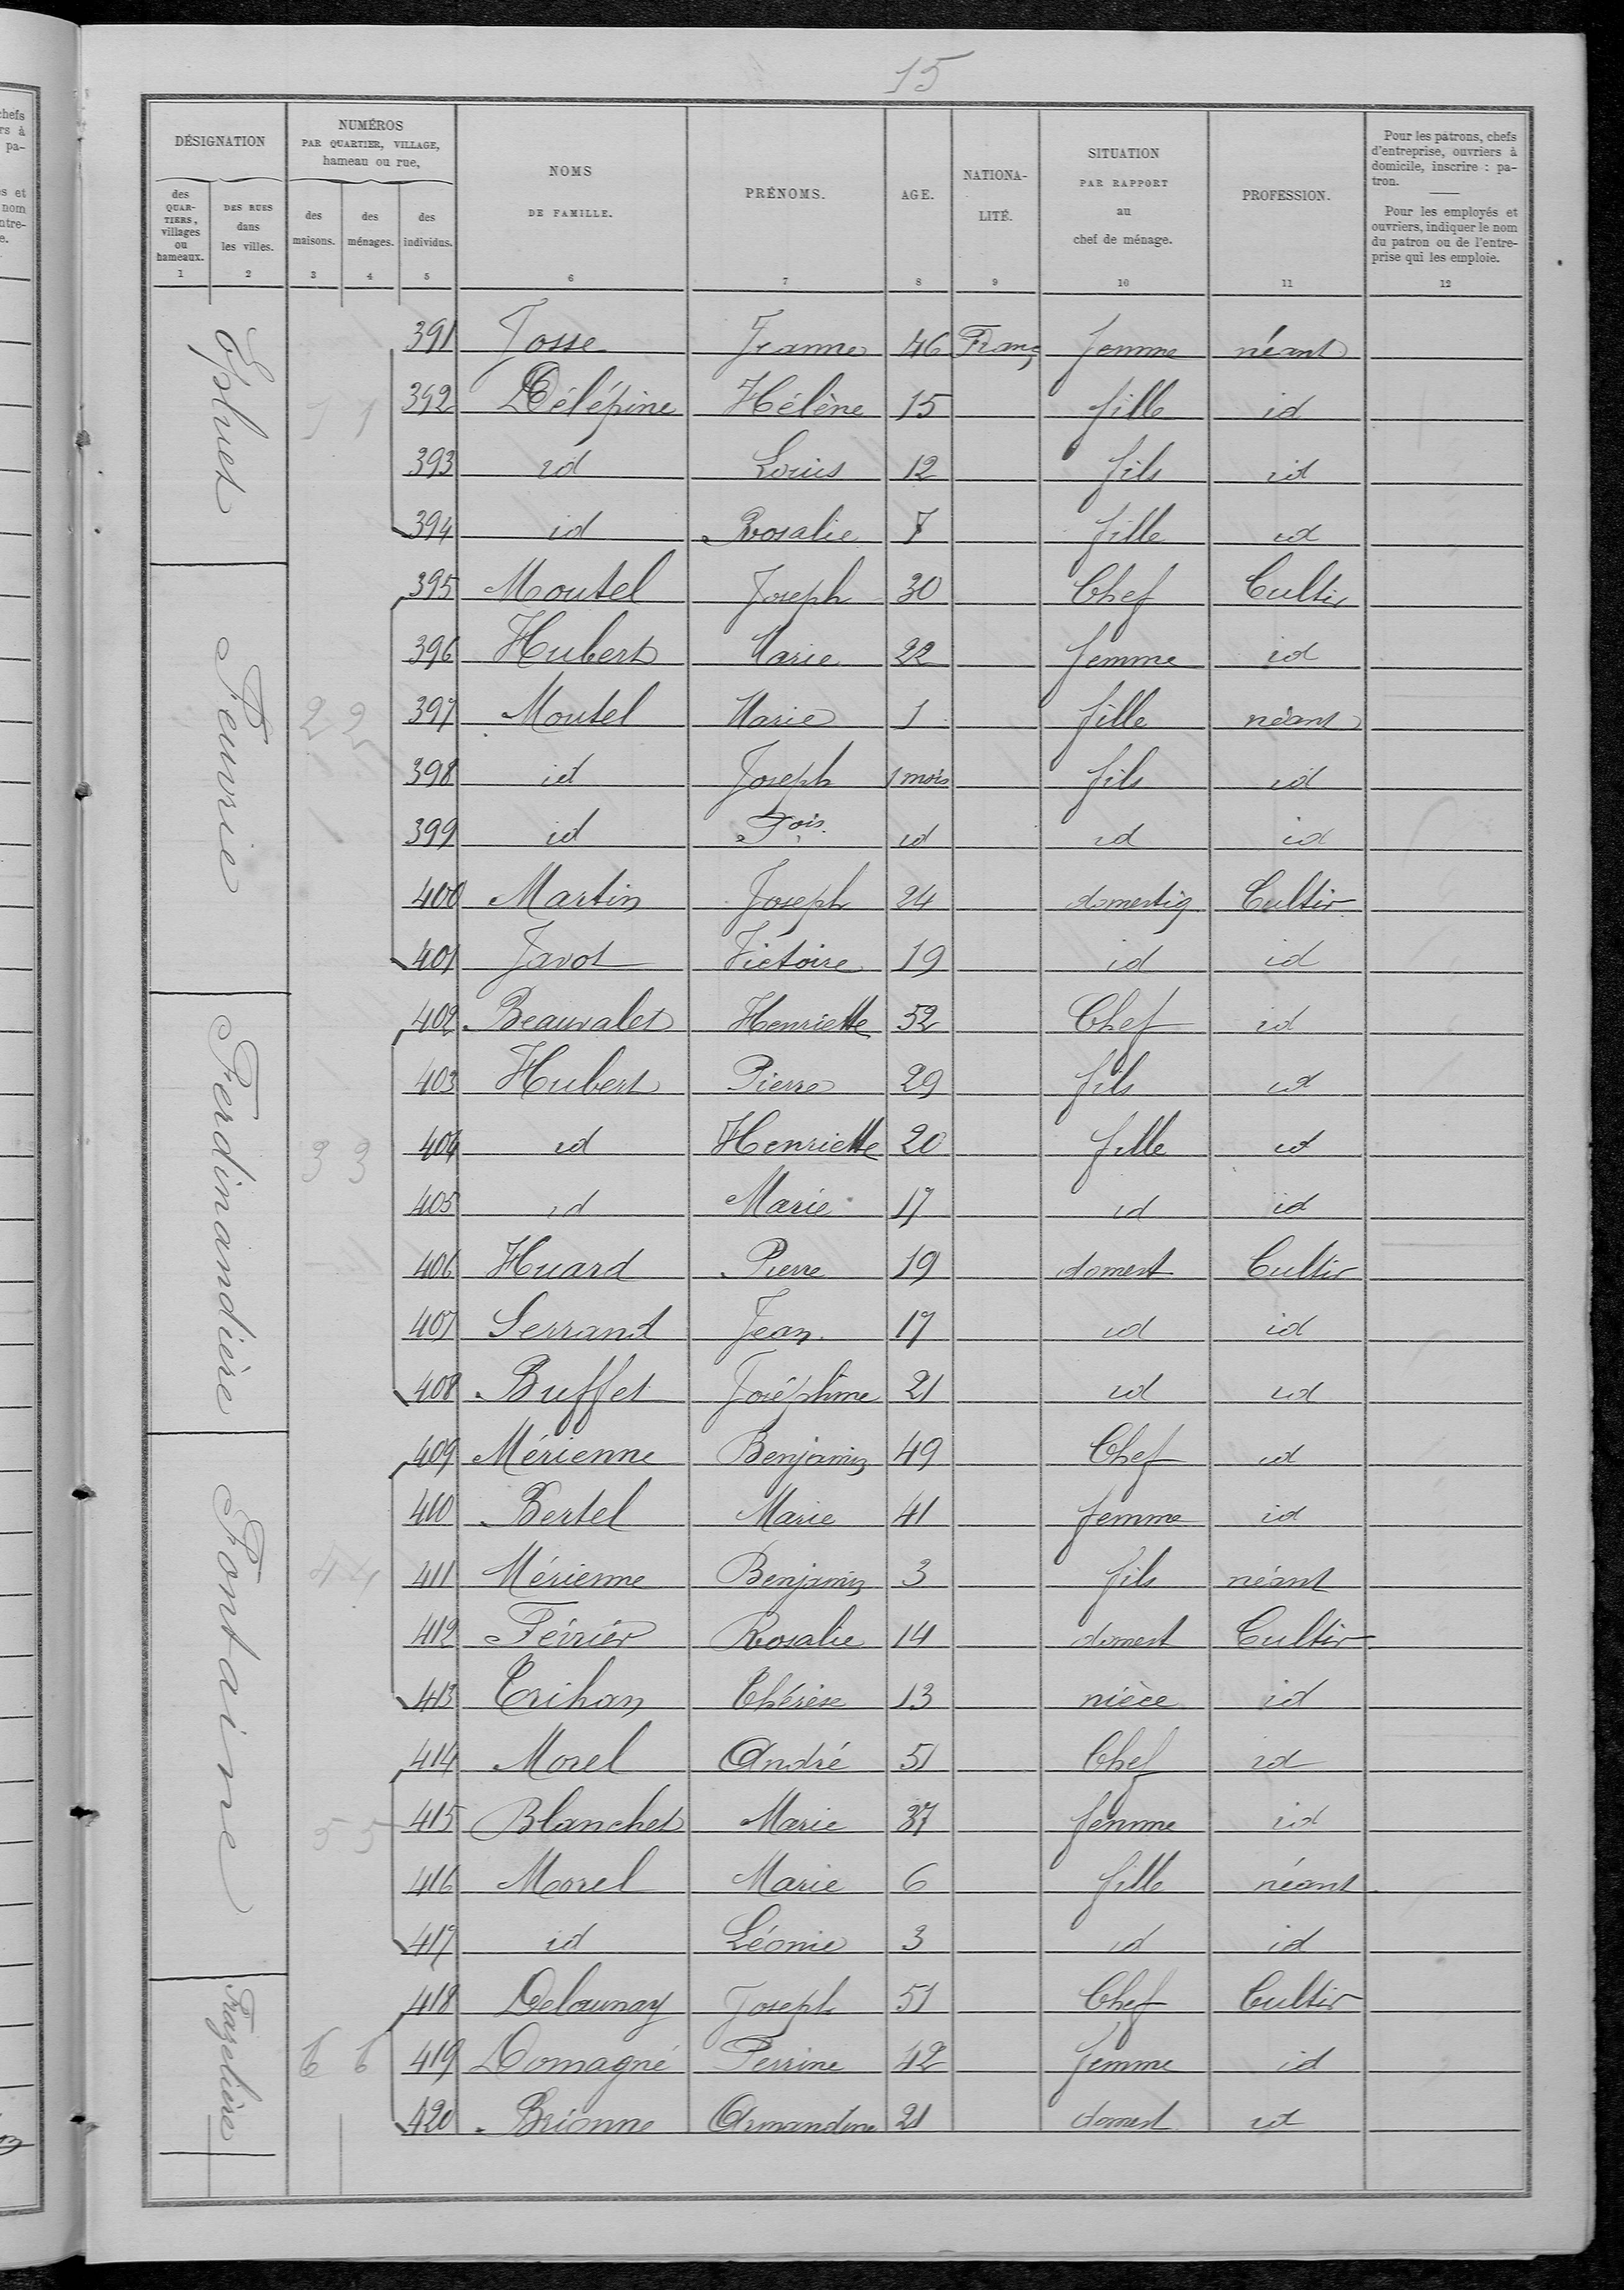 15
DÉSIGNATION
des QUARTIERS, villages ou hameaux. 1
DES RUES dans les villes. 2
NUMÉROS PAR QUARTIER, VILLAGE, hameau ou rue,
des maisons. 3
des ménages. 4
des individus. 5
NOMS DE FAMILLE. 6
PRÉNOMS. 7
AGE. 8
NATIONALITÉ. 9
SITUATION PAR RAPPORT au chef de ménage. 10
PROFESSION. 11
Pour les patrons, chefs d'entreprise, ouvriers à domicile, inscrire : patron.
Pour les employés et ouvriers, indiquer le nom du patron ou de l'entreprise qui les emploie. 12
391 Josse Jeanne 46 Franç femme néant
1 1 392 Délépine Hélène 15 fille id
393 id Louis 12 fils id
394 id Rosalie 7 fille id
395 Moutel Joseph 30 Chef Cultiv
396 Hubert Marie 22 femme id
2 2 397 Moutel Marie 1 fille néant
398 id Joseph 1 mois fils id
399 id Fois id id id
400 Martin Joseph 24 domestiq Cultiv
401 Javot Victoire 19 id id
Ferdinandière
402 Beauvalet Henriette 52 Chef id
403 Hubert Pierre 29 fils id
3 3 404 id Henriette 20 fille id
405 id Marie 17 id id
406 Huard Pierre 19 domest Cultiv
407 Serrand Jean 17 id id
408 Buffet Joséphine 21 id id
Fontaine
409 Mérienne Benjamin 49 Chef id
410 Bertel Marie 41 femme id
4 4 411 Mérienne Benjamin 3 fils néant
412 Févrièr Rosalie 14 domest Cultiv
413 Crihan Thérèse 13 nièce id
414 Morel André 51 Chef id
5 5 415 Blanchet Marie 37 femme id
416 Morel Marie 6 fille néant
417 id Léonie 3 id id
418 Delaunay Joseph 51 Chef Cultiv
6 6 419 Domagné Perrine 42 femme id
420 Brionne Armandine 21 domest id